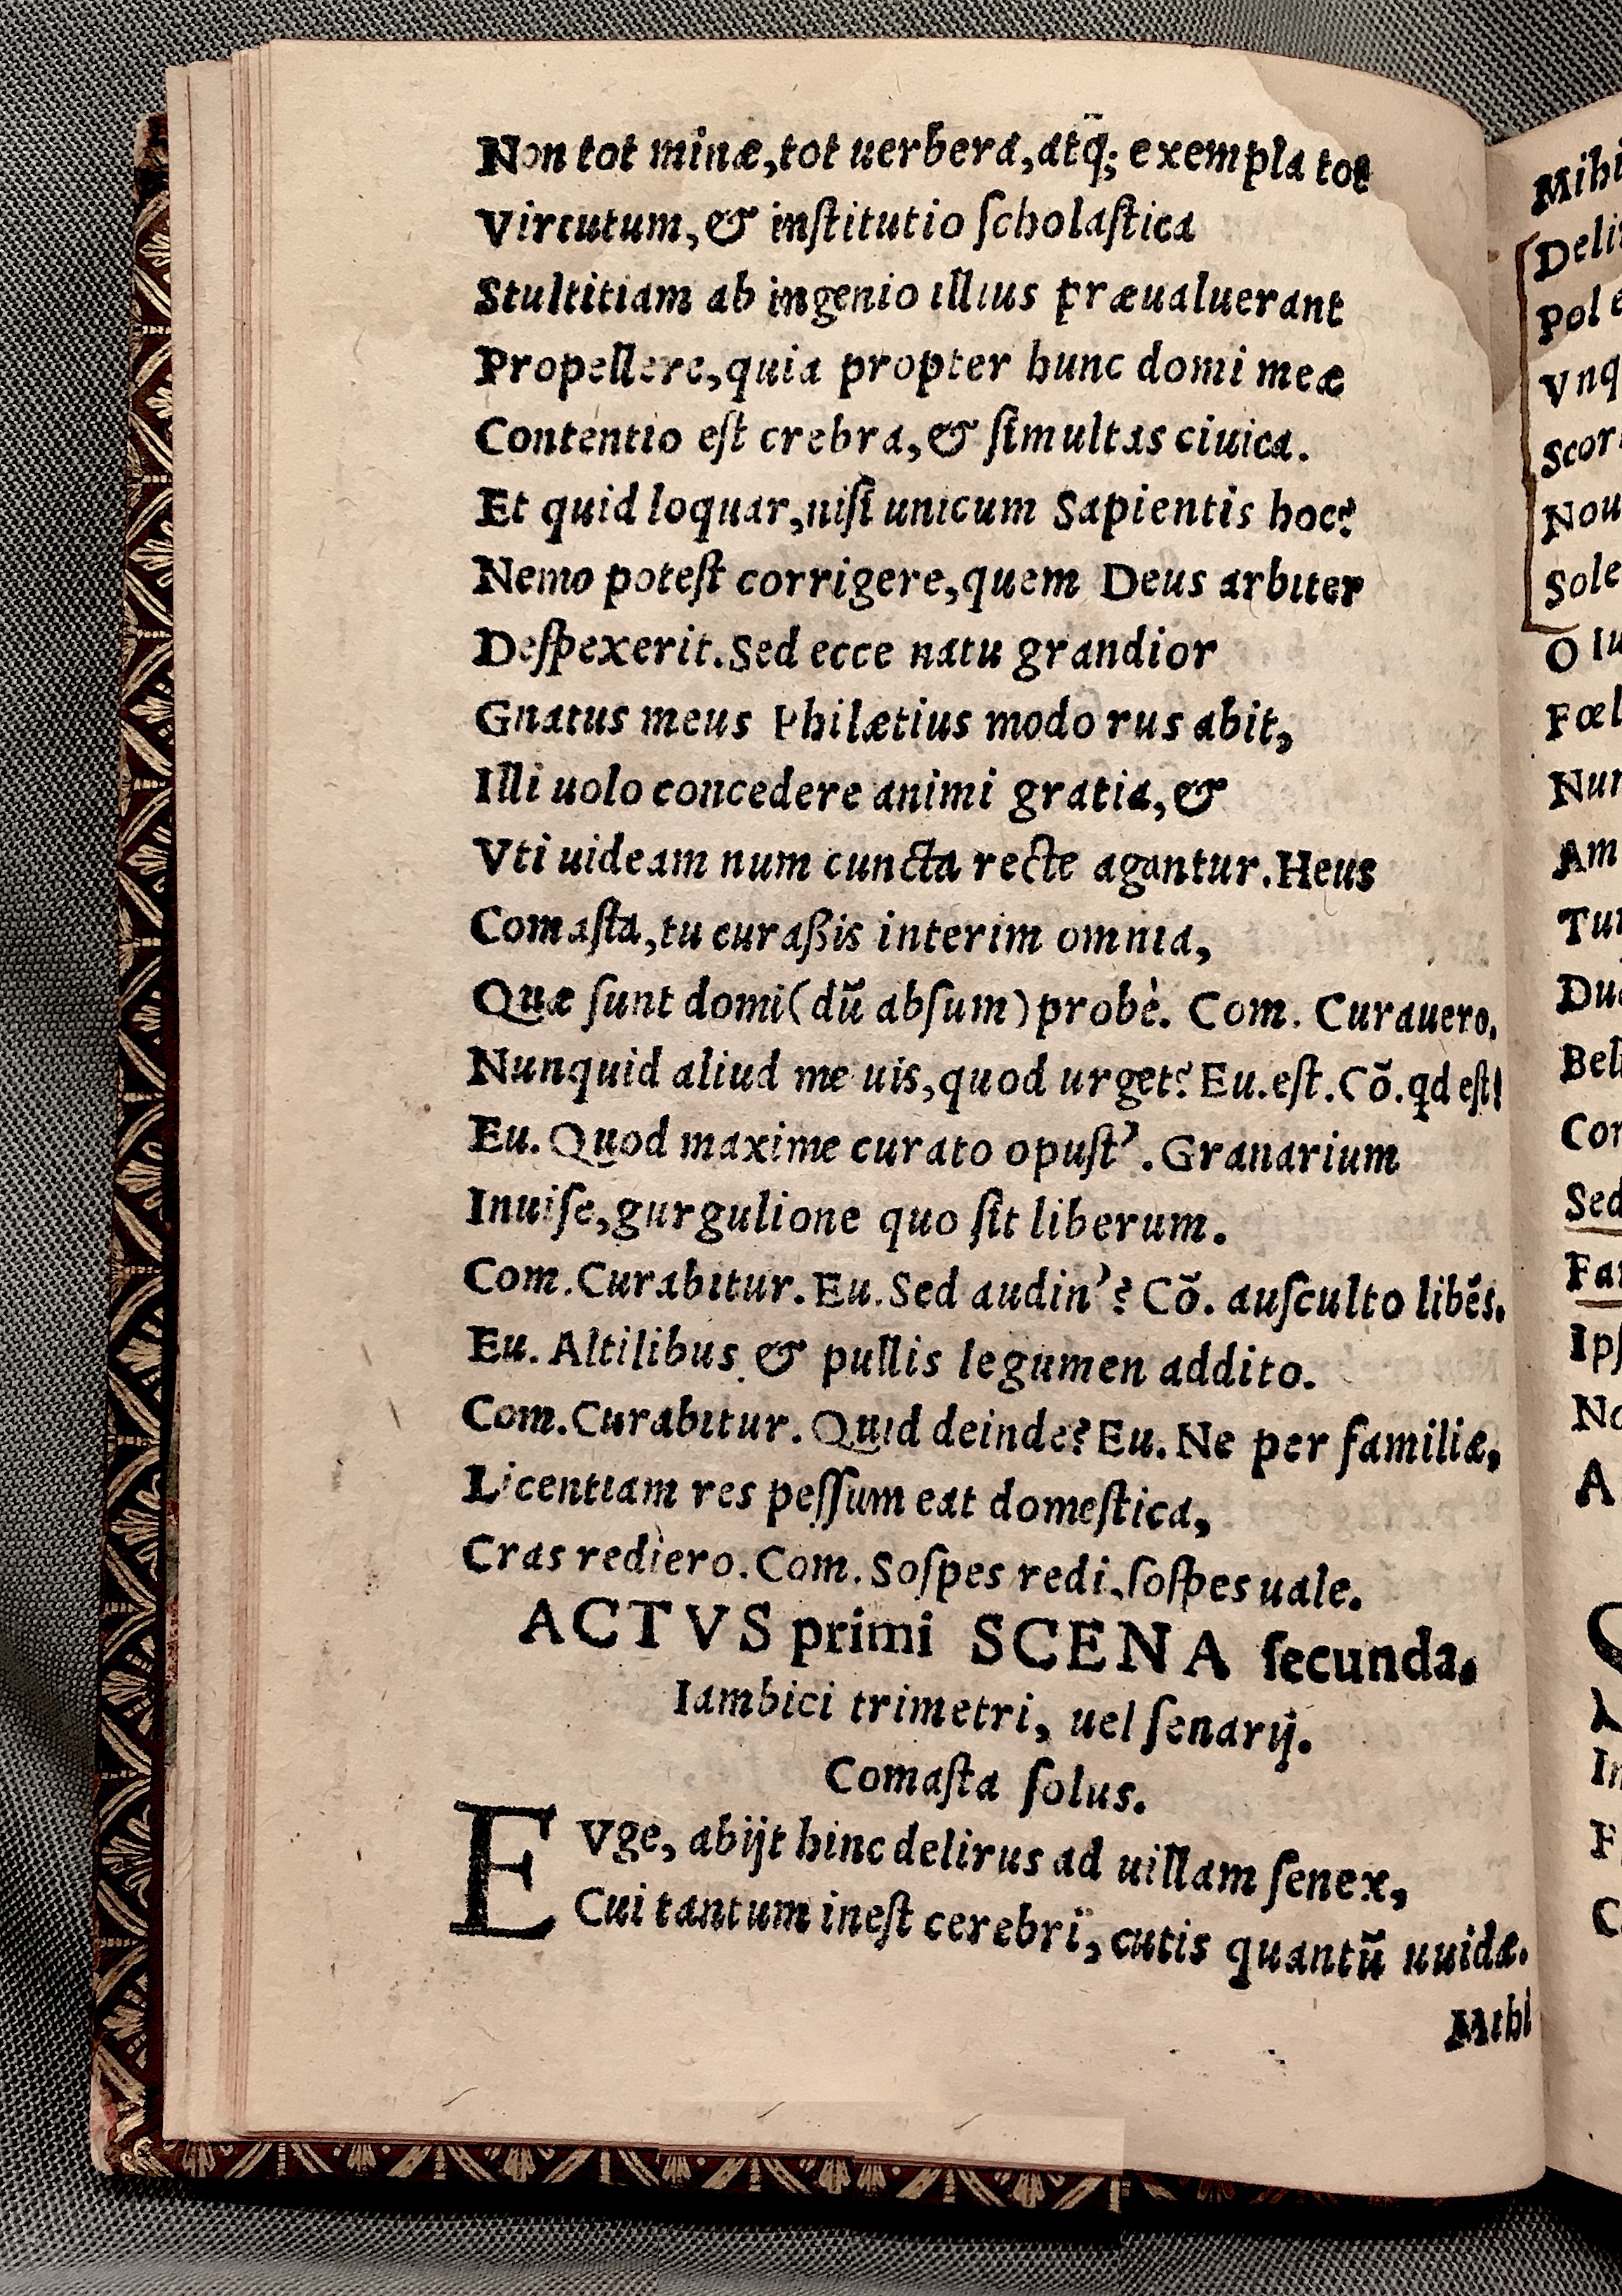 Non tot minæ, tot uerbera, atq̃; exempla tot
Virtutum, & inſtitutio ſcholaſtica
Stultitiam ab ingenio illius præualuerant
Propellere, quia propter hunc domi meæ
Contentio eſt crebra, & ſimultas ciuica.
Et quid loquar, niſi unicum Sapientis hoc?
Nemo poteſt corrigere, quem Deus arbiter
Deſpexerit. Sed ecce natu grandior
Gnatus meus Philætius modo rus abit,
Illi uolo concedere animi gratia, &
Vti uideam num cuncta recte agantur. Heus
Comaſta, tu curaßis interim omnia,
Quæ ſunt domi (dũ abſum) probè. Com. Curauero.
Nunquid aliud me uis, quod urget? Eu. eſt. Cõ. qd eſt!
Eu. Quod maxime curato opuſt’. Granarium
Inuiſe, gurgulione quo ſit liberum.
Com. Curabitur. Eu. Sed audin’? Cõ. auſculto libẽs.
Eu. Altilibus & pullis legumen addito.
Com. Curabitur. Quid deinde? Eu. Ne per familiæ,
Licentiam res peſſum eat domeſtica,
Cras rediero. Com. Soſpes redi, ſoſpes uale.
ACTVS primi SCENA ſecunda.
Iambici trimetri, uel ſenarij.
Comaſta ſolus.
EVge, abijt hinc delirus ad uillam ſenex,
Cui tantum ineſt cerebri, cutis quantũ uuidæ.
Mihi
Mihi
Pol
Vnq
Scor
Nou
Sole
O Iu
Fœl
Am
Bel
Sed